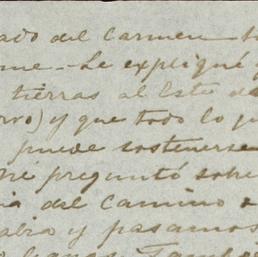 ado del Carmen
me - Le expliqué
tierras al Este de
rro) y que todo lo
puede sostenerse
me preguntó sobre
ia del camino
y pasamos